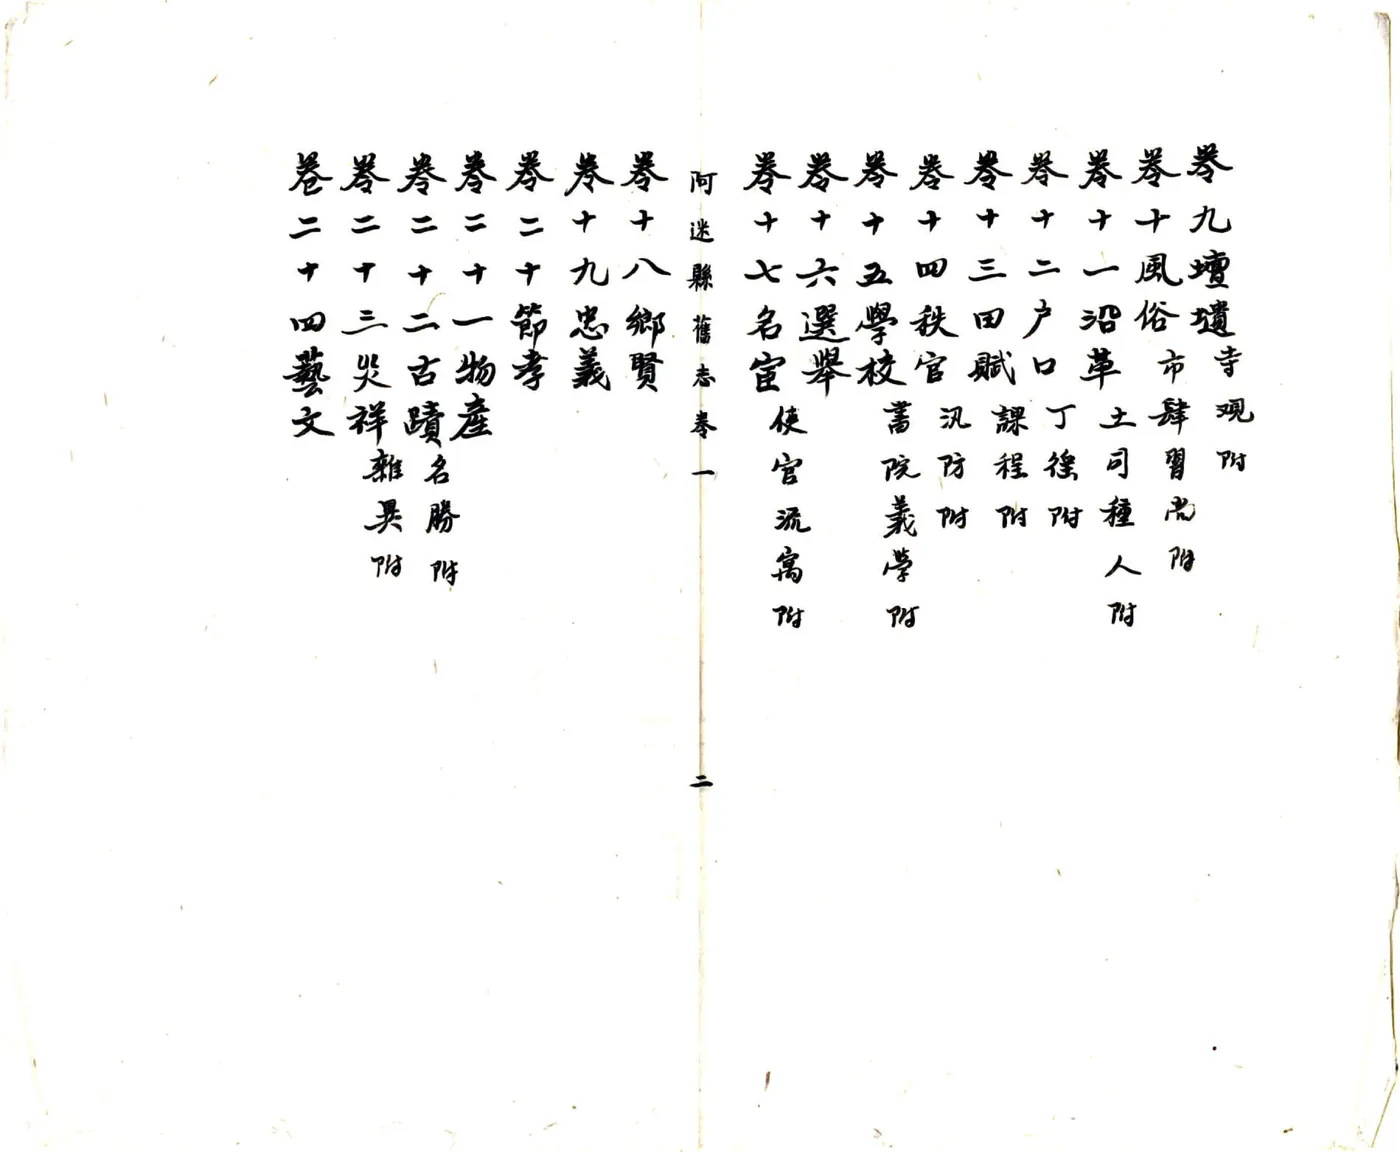 卷九壇壝寺观附
卷十風俗市肆習尚附
卷十一沿革土司種人附
卷十二户口丁徭附
卷十三田賦課程附
卷十四秩官汛防附
卷十五學校書院義學附
卷十六選舉
卷十七名宦使官流寓附
阿迷縣舊志卷一
二
卷十八鄉賢
卷十九忠義
卷二十節孝
卷二十一物產
卷二十二古蹟名勝附
卷二十三災祥雜異附
卷二十四藝文